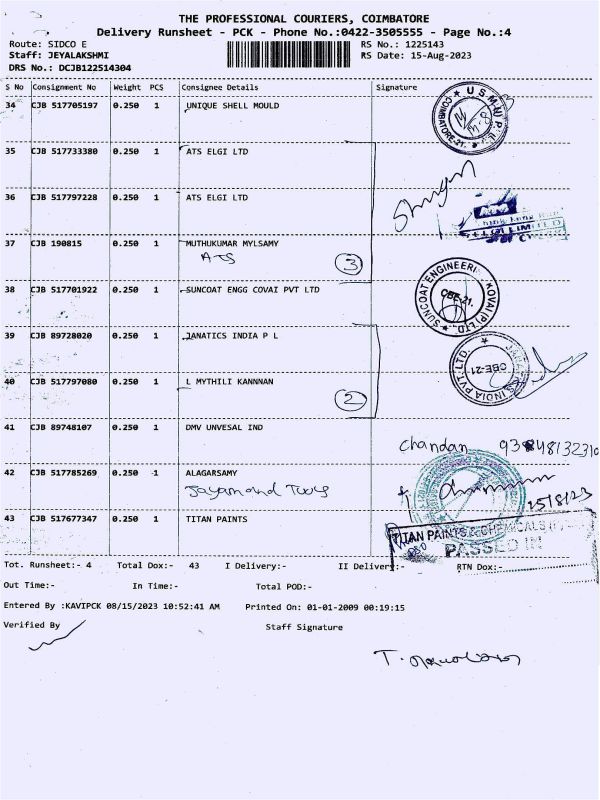 THE PROFESSIONAL COURIERS, COIMBATORE
Delivery Runsheet - PCK - Phone No.:0422-3505555 - Page No.:4
Route: SIDCO E RS No.: 1225143
Staff: JEYALAKSHMI RS Date: 15-Aug-2023
DRS No.: DCJB122514304
S No Consignment No Weight PCS Consignee Details Signature
34 CJB 517705197 0.250 1 UNIQUE SHELL MOULD
COIMBATORE-21.
35 CJB 517733380 0.250 1 ATS ELGI LTD
36 CJB 517797228 0.250 1 ATS ELGI LTD
37 CJB 190815 0.250 1 MUTHUKUMAR MYLSAMY
ATS
3
38 CJB 517701922 0.250 1 SUNCOAT ENGG COVAI PVT LTD
SUNCOAT ENGINEERI KOVAI (P) LTD.
CBE-21.
39 CJB 89728020 0.250 1 JANATICS INDIA P L
INDIA PVT. LTD.
CBE-21
40 CJB 517797080 0.250 1 L MYTHILI KANNNAN
2
41 CJB 89748107 0.250 1 DMV UNVESAL IND
Chandan
42 CJB 517785269 0.250 1 ALAGARSAMY
15/8/23
43 CJB 517677347 0.250 1 TITAN PAINTS
TITAN PAINTS & CHEMICALS
PASSED IN
Tot. Runsheet:- 4 Total Dox:- 43 I Delivery:- II Delivery:- RTN Dox:-
Out Time:- In Time:- Total POD:-
Entered By :KAVIPCK 08/15/2023 10:52:41 AM Printed On: 01-01-2009 00:19:15
Verified By Staff Signature